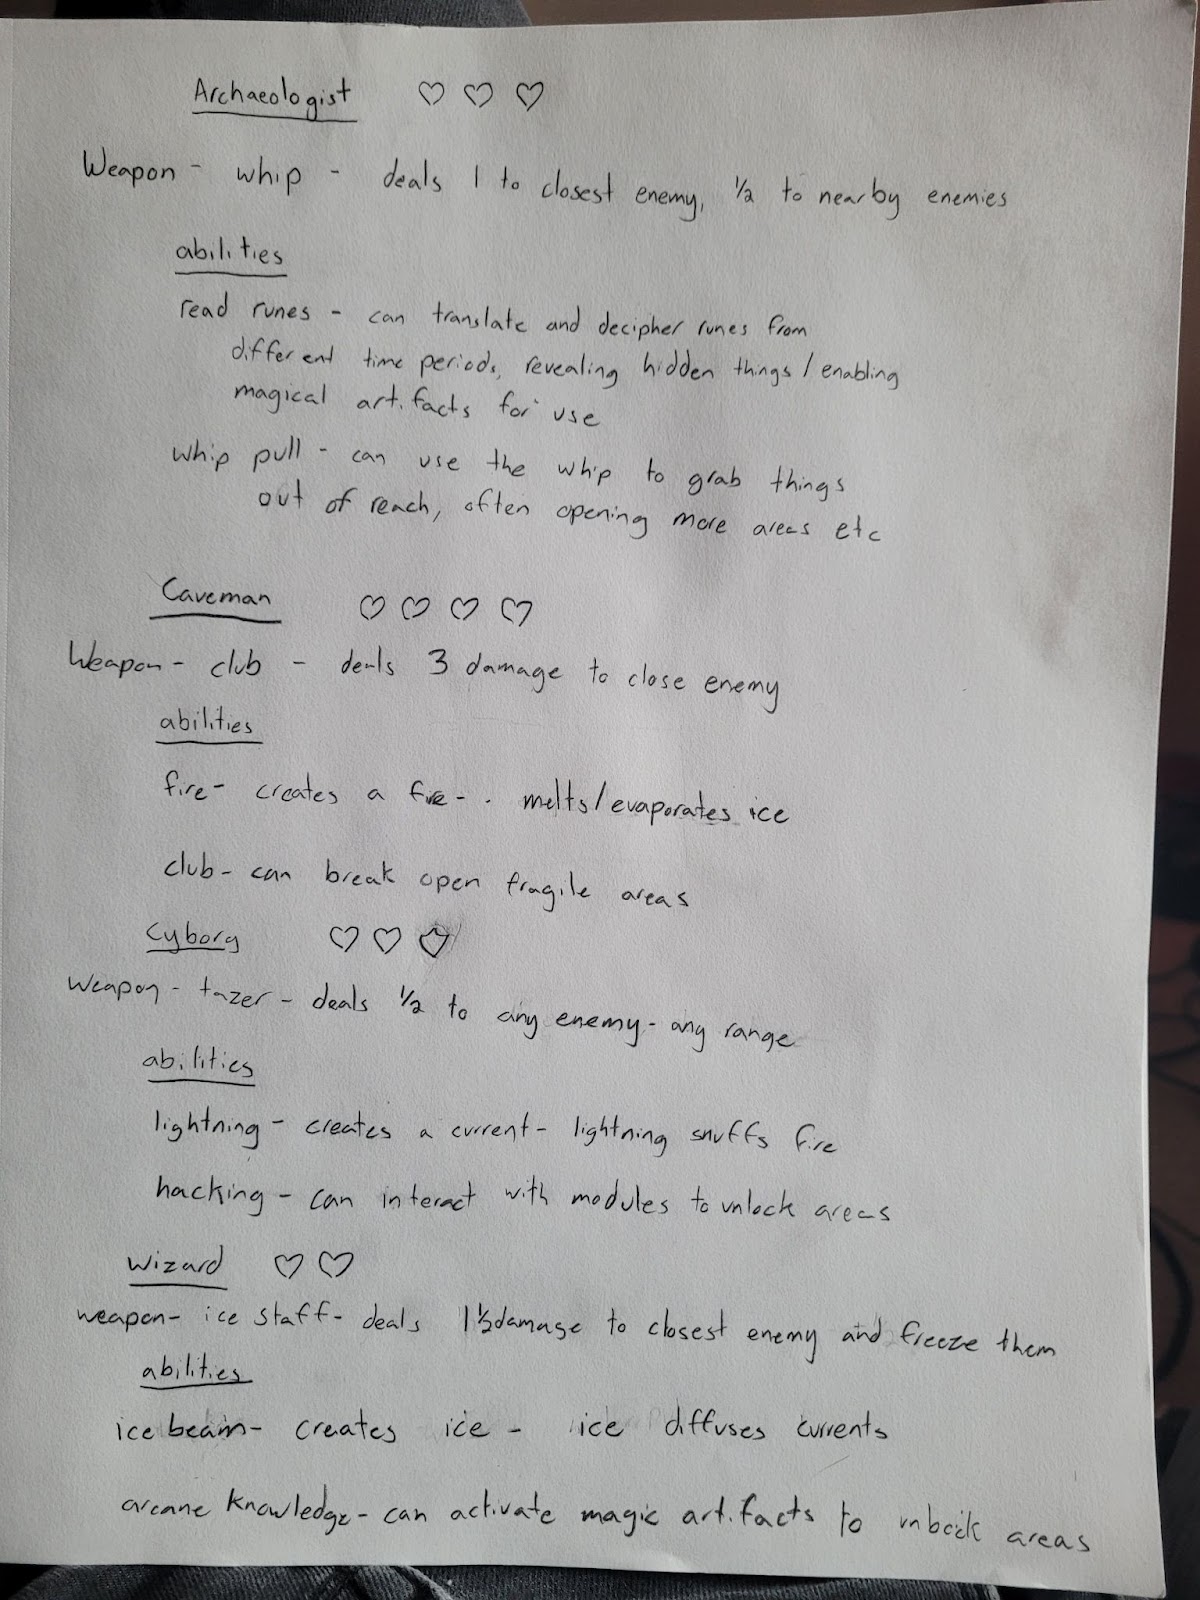 Archaeologist ♡ ♡ ♡
Weapon - whip - deals 1 to closest enemy, 1/2 to nearby enemies
abilities
read runes - can translate and decipher runes from
different time periods, revealing hidden things / enabling
magical artifacts for use
whip pull - can use the whip to grab things
out of reach, often opening more areas etc
Caveman ♡ ♡ ♡ ♡
Weapon - club - deals 3 damage to close enemy
abilities
fire - creates a fire - . melts/evaporates ice
club - can break open fragile areas
Cyborg ♡ ♡ ♡
weapon - tazer - deals 1/2 to any enemy - any range
abilities
lightning - creates a current - lightning snuffs fire
hacking - can interact with modules to unlock areas
Wizard ♡ ♡
weapon - ice staff - deals 1 1/2 damage to closest enemy and freeze them
abilities
ice beam - creates ice - ice diffuses currents
arcane knowledge - can activate magic artifacts to unlock areas